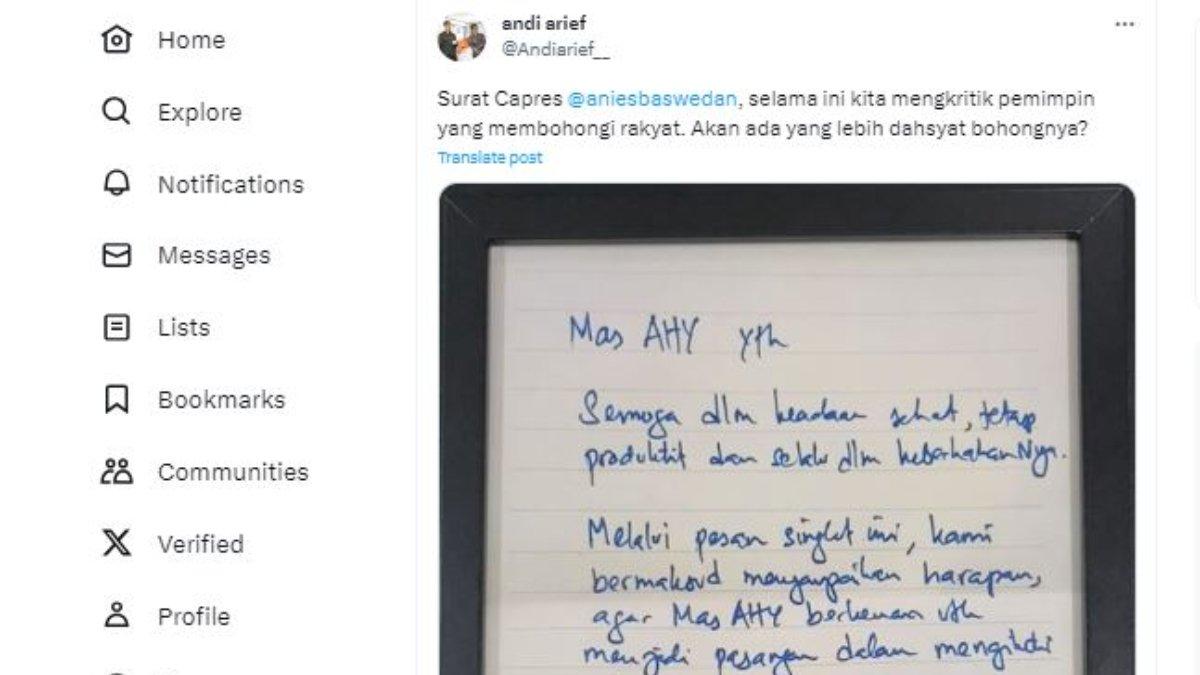 Home
Explore
Notifications
Messages
Lists
Bookmarks
Communities
Verified
Profile
andi arief
@Andiarief__
Surat Capres @aniesbaswedan, selama ini kita mengkritik pemimpin
yang membohongi rakyat. Akan ada yang lebih dahsyat bohongnya?
Translate post
Mas AHY yth
Semoga dlm keadaan sehat, tetap
produktif dan selalu dlm keberkahanNya.
Melalui pesan singkat ini, kami
bermaksud menyampaikan harapan,
agar Mas AHY berkenan utk
menjadi pasangan dalam mengikuti